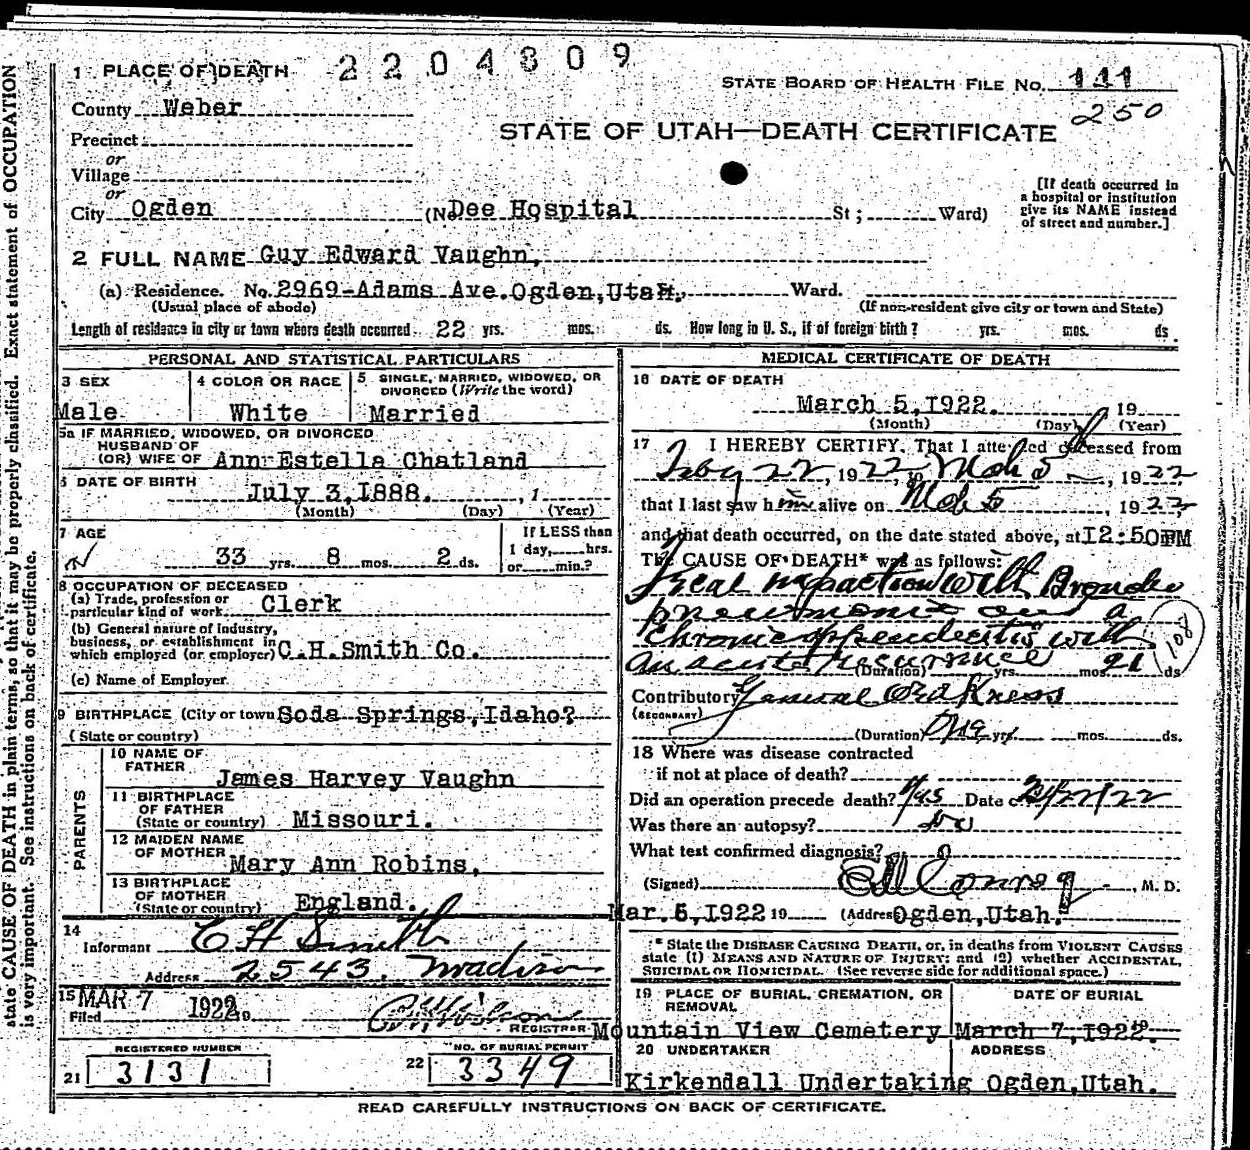 2204309
1 PLACE OF DEATH
STATE BOARD OF HEALTH FILE NO. 141
250
County Weber
STATE OF UTAH—DEATH CERTIFICATE
Precinct
or
Village
or
City Ogden (No Dee Hospital St; Ward)
[If death occurred in a hospital or institution give its NAME instead of street and number.]
2 FULL NAME Guy Edward Vaughn,
(a) Residence. No. 2969-Adams Ave. Ogden, Utah, Ward.
(Usual place of abode) (If non-resident give city or town and State)
Length of residence in city or town where death occurred 22 yrs. mos. ds. How long in U. S., if of foreign birth? yrs. mos. ds
PERSONAL AND STATISTICAL PARTICULARS
3 SEX
Male
4 COLOR OR RACE
White
5 SINGLE, MARRIED, WIDOWED, OR DIVORCED (Write the word)
Married
5a IF MARRIED, WIDOWED, OR DIVORCED
HUSBAND OF
(OR) WIFE OF Ann Estella Chatland
6 DATE OF BIRTH July 3, 1888. , 1
(Month) (Day) (Year)
7 AGE
33 yrs. 8 mos. 2 ds.
If LESS than
1 day, hrs.
or min.?
8 OCCUPATION OF DECEASED
(a) Trade, profession or
particular kind of work Clerk
(b) General nature of industry,
business, or establishment in
which employed (or employer) C.H.Smith Co.
(c) Name of Employer
9 BIRTHPLACE (City or town Soda Springs, Idaho?
(State or country)
PARENTS
10 NAME OF
FATHER
James Harvey Vaughn
11 BIRTHPLACE
OF FATHER
(State or country) Missouri.
12 MAIDEN NAME
OF MOTHER Mary Ann Robins,
13 BIRTHPLACE
OF MOTHER
(State or country) England.
14
Informant C H Smith
Address 2543. Madison
15 MAR 7 1922
Filed
REGISTRAR
REGISTERED NUMBER
21 3131
NO. OF BURIAL PERMIT
22 3349
MEDICAL CERTIFICATE OF DEATH
16 DATE OF DEATH
March 5, 1922. 19
(Month) (Day) (Year)
17 I HEREBY CERTIFY, That I attended deceased from
Feby 22, 1922, to Mch 5, 1922
that I last saw him alive on Mch 5 1922
and that death occurred, on the date stated above, at 12:50 PM
THE CAUSE OF DEATH* was as follows:
Fecal Impaction with Broncho
pneumonia and a
Chronic appendecitis with
an acute recurrence
108
(Duration) yrs. mos. 21 ds
Contributory General Weakness
(SECONDARY)
(Duration) One yrs. mos. ds.
18 Where was disease contracted
if not at place of death?
Did an operation precede death? Yes Date of 2/22/22
Was there an autopsy? No
What test confirmed diagnosis?
(Signed) , M. D.
Mar. 5, 1922 19 (Address Ogden, Utah.
* State the DISEASE CAUSING DEATH, or, in deaths from VIOLENT CAUSES
state (1) MEANS AND NATURE OF INJURY; and (2) whether ACCIDENTAL,
SUICIDAL OR HOMICIDAL. (See reverse side for additional space.)
19 PLACE OF BURIAL, CREMATION, OR REMOVAL
Mountain View Cemetery
DATE OF BURIAL
March 7, 1922. 19
20 UNDERTAKER
Kirkendall Undertaking
ADDRESS
Ogden, Utah.
READ CAREFULLY INSTRUCTIONS ON BACK OF CERTIFICATE.
state CAUSE OF DEATH in plain terms, so that it may be properly classified. Exact statement of OCCUPATION
is very important. See instructions on back of certificate.